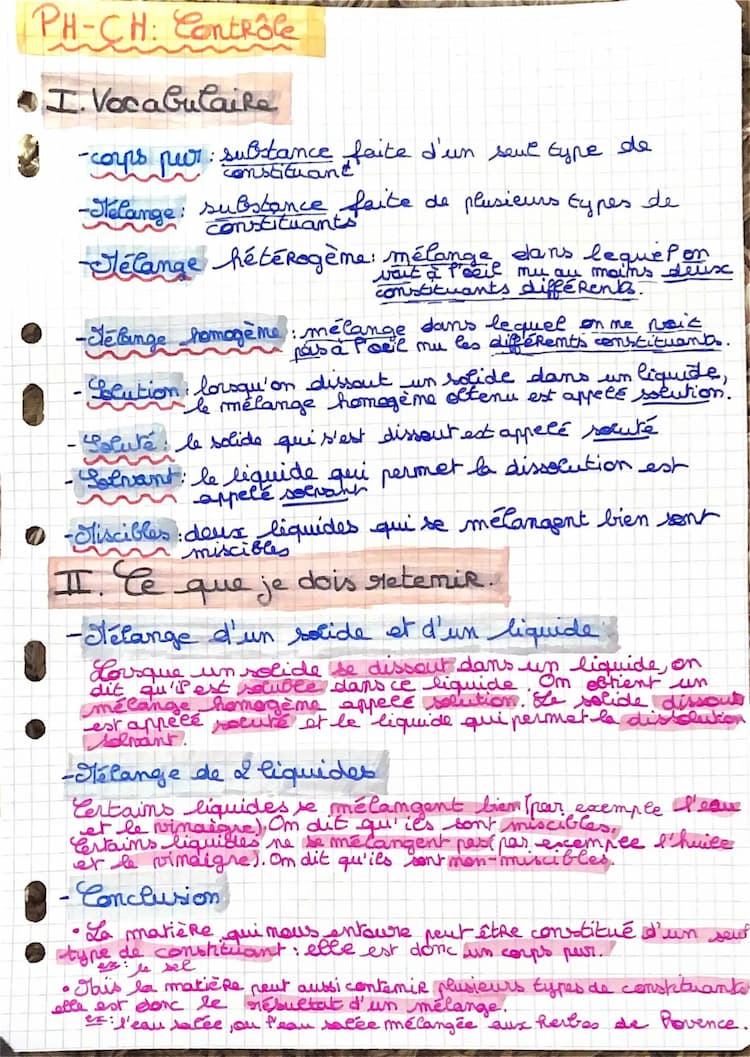 PH-CH: Contrôle
I. Vocabulaire
-corps pur: substance faite d'un seul type de
constituant
-Mélange: substance faite de plusieurs types de
constituants
-Mélange hétérogène: mélange dans lequel on
voit à l'oeil nu au moins deux
constituants différents.
-Mélange homogène: mélange dans lequel on ne voit
pas à l'oeil nu les différents constituants.
- Solution: lorsqu'on dissout un solide dans un liquide,
le mélange homogène obtenu est appelé solution.
- Soluté: le solide qui s'est dissout est appelé soluté
- Solvant: le liquide qui permet la dissolution est
appelé solvant
- Miscibles: deux liquides qui se mélangent bien sont
miscibles
II. Ce que je dois retenir.
-Mélange d'un solide et d'un liquide
Lorsque un solide se dissout dans un liquide, on
dit qu'il est soluble dans ce liquide. On obtient un
mélange homogène appelé solution. Le solide dissout
est appelé soluté et le liquide qui permet la dissolution
solvant.
-Mélange de 2 liquides
Certains liquides se mélangent bien (par exemple l'eau
et le vinaigre). On dit qu'ils sont miscibles.
Certains liquides ne se mélangent pas (par exemple l'huile
et le vinaigre). On dit qu'ils sont non-miscibles.
- Conclusion
• La matière qui nous entoure peut être constitué d'un seul
type de constituant: elle est donc un corps pur.
ex: le sel
• Mais la matière peut aussi contenir plusieurs types de constituants
elle est donc le résultat d'un mélange.
ex: l'eau salée, ou l'eau salée mélangée aux herbes de Provence.